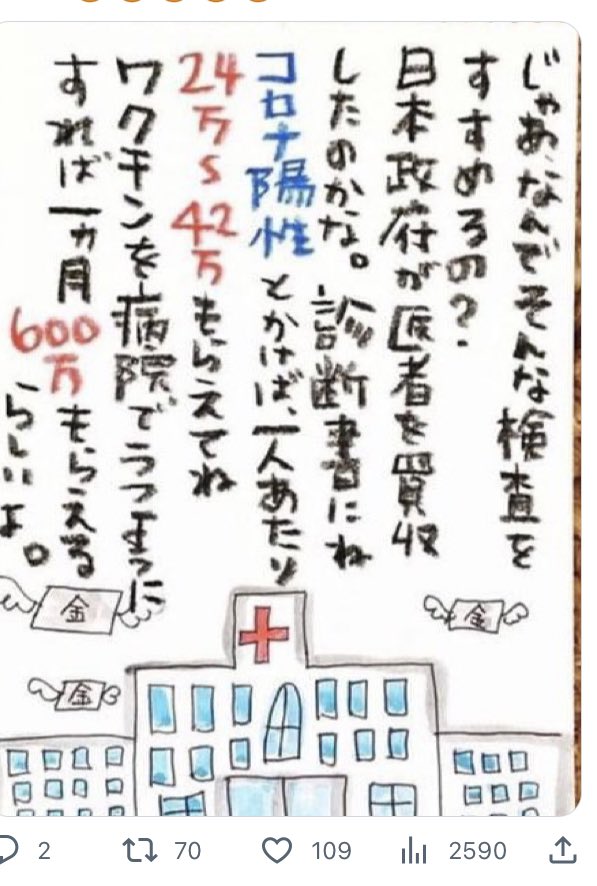 じゃあ、なんでそんな検査を
すすめるの？
日本政府が医者を買収
したのかな。診断書にね
コロナ陽性とかけば、一人あたり
24万〜42万もらえてね
ワクチンを病院でうつように
すれば一ヵ月600万もらえる
らしいよ。
金
金
金
2
70
109
2590